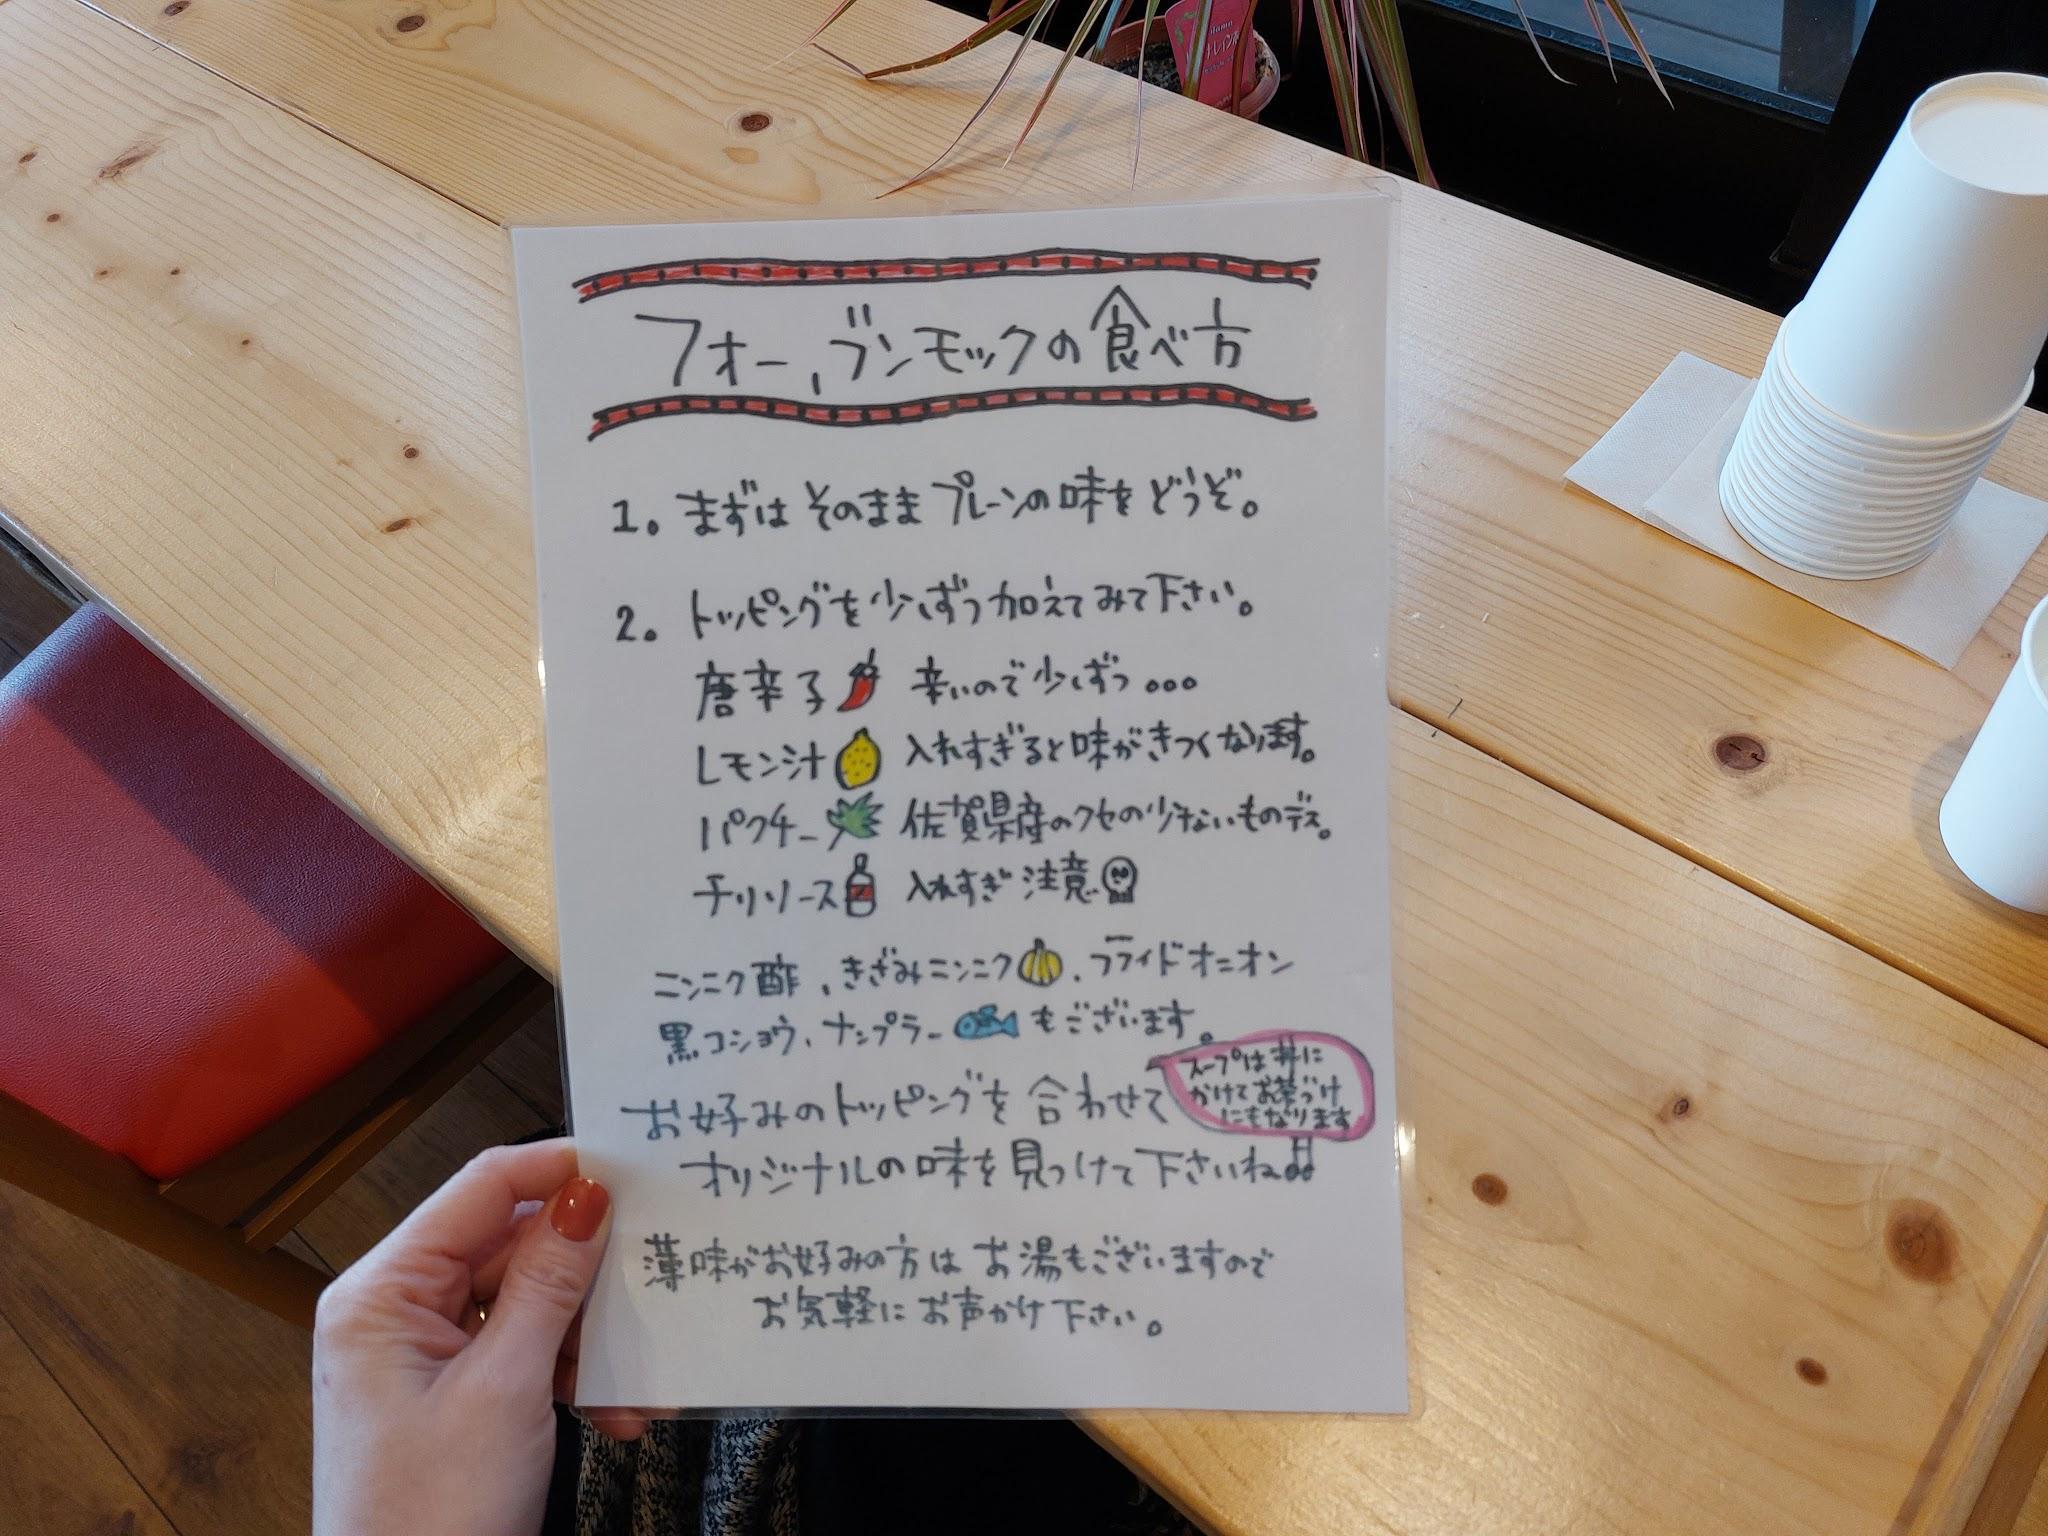 フォー、ブンモックの食べ方
1。まずは そのまま プレーンの味を どうぞ。
2。トッピングを 少しずつ 加えて みて 下さい。
唐辛子 辛いので 少しずつ 。。。
レモン汁 入れすぎると 味が きつく なります。
パクチー 佐賀県産の クセの 少ないものデス。
チリソース 入れすぎ 注意
ニンニク酢、きざみニンニク、フライドオニオン
黒コショウ、ナンプラー もございます。
スープは 丼に
かけて お茶づけ
にもなります
お好みのトッピングを 合わせて
オリジナルの 味を 見つけて 下さいね♫
薄味がお好みの方は お湯もございますので
お気軽に お声かけ 下さい。